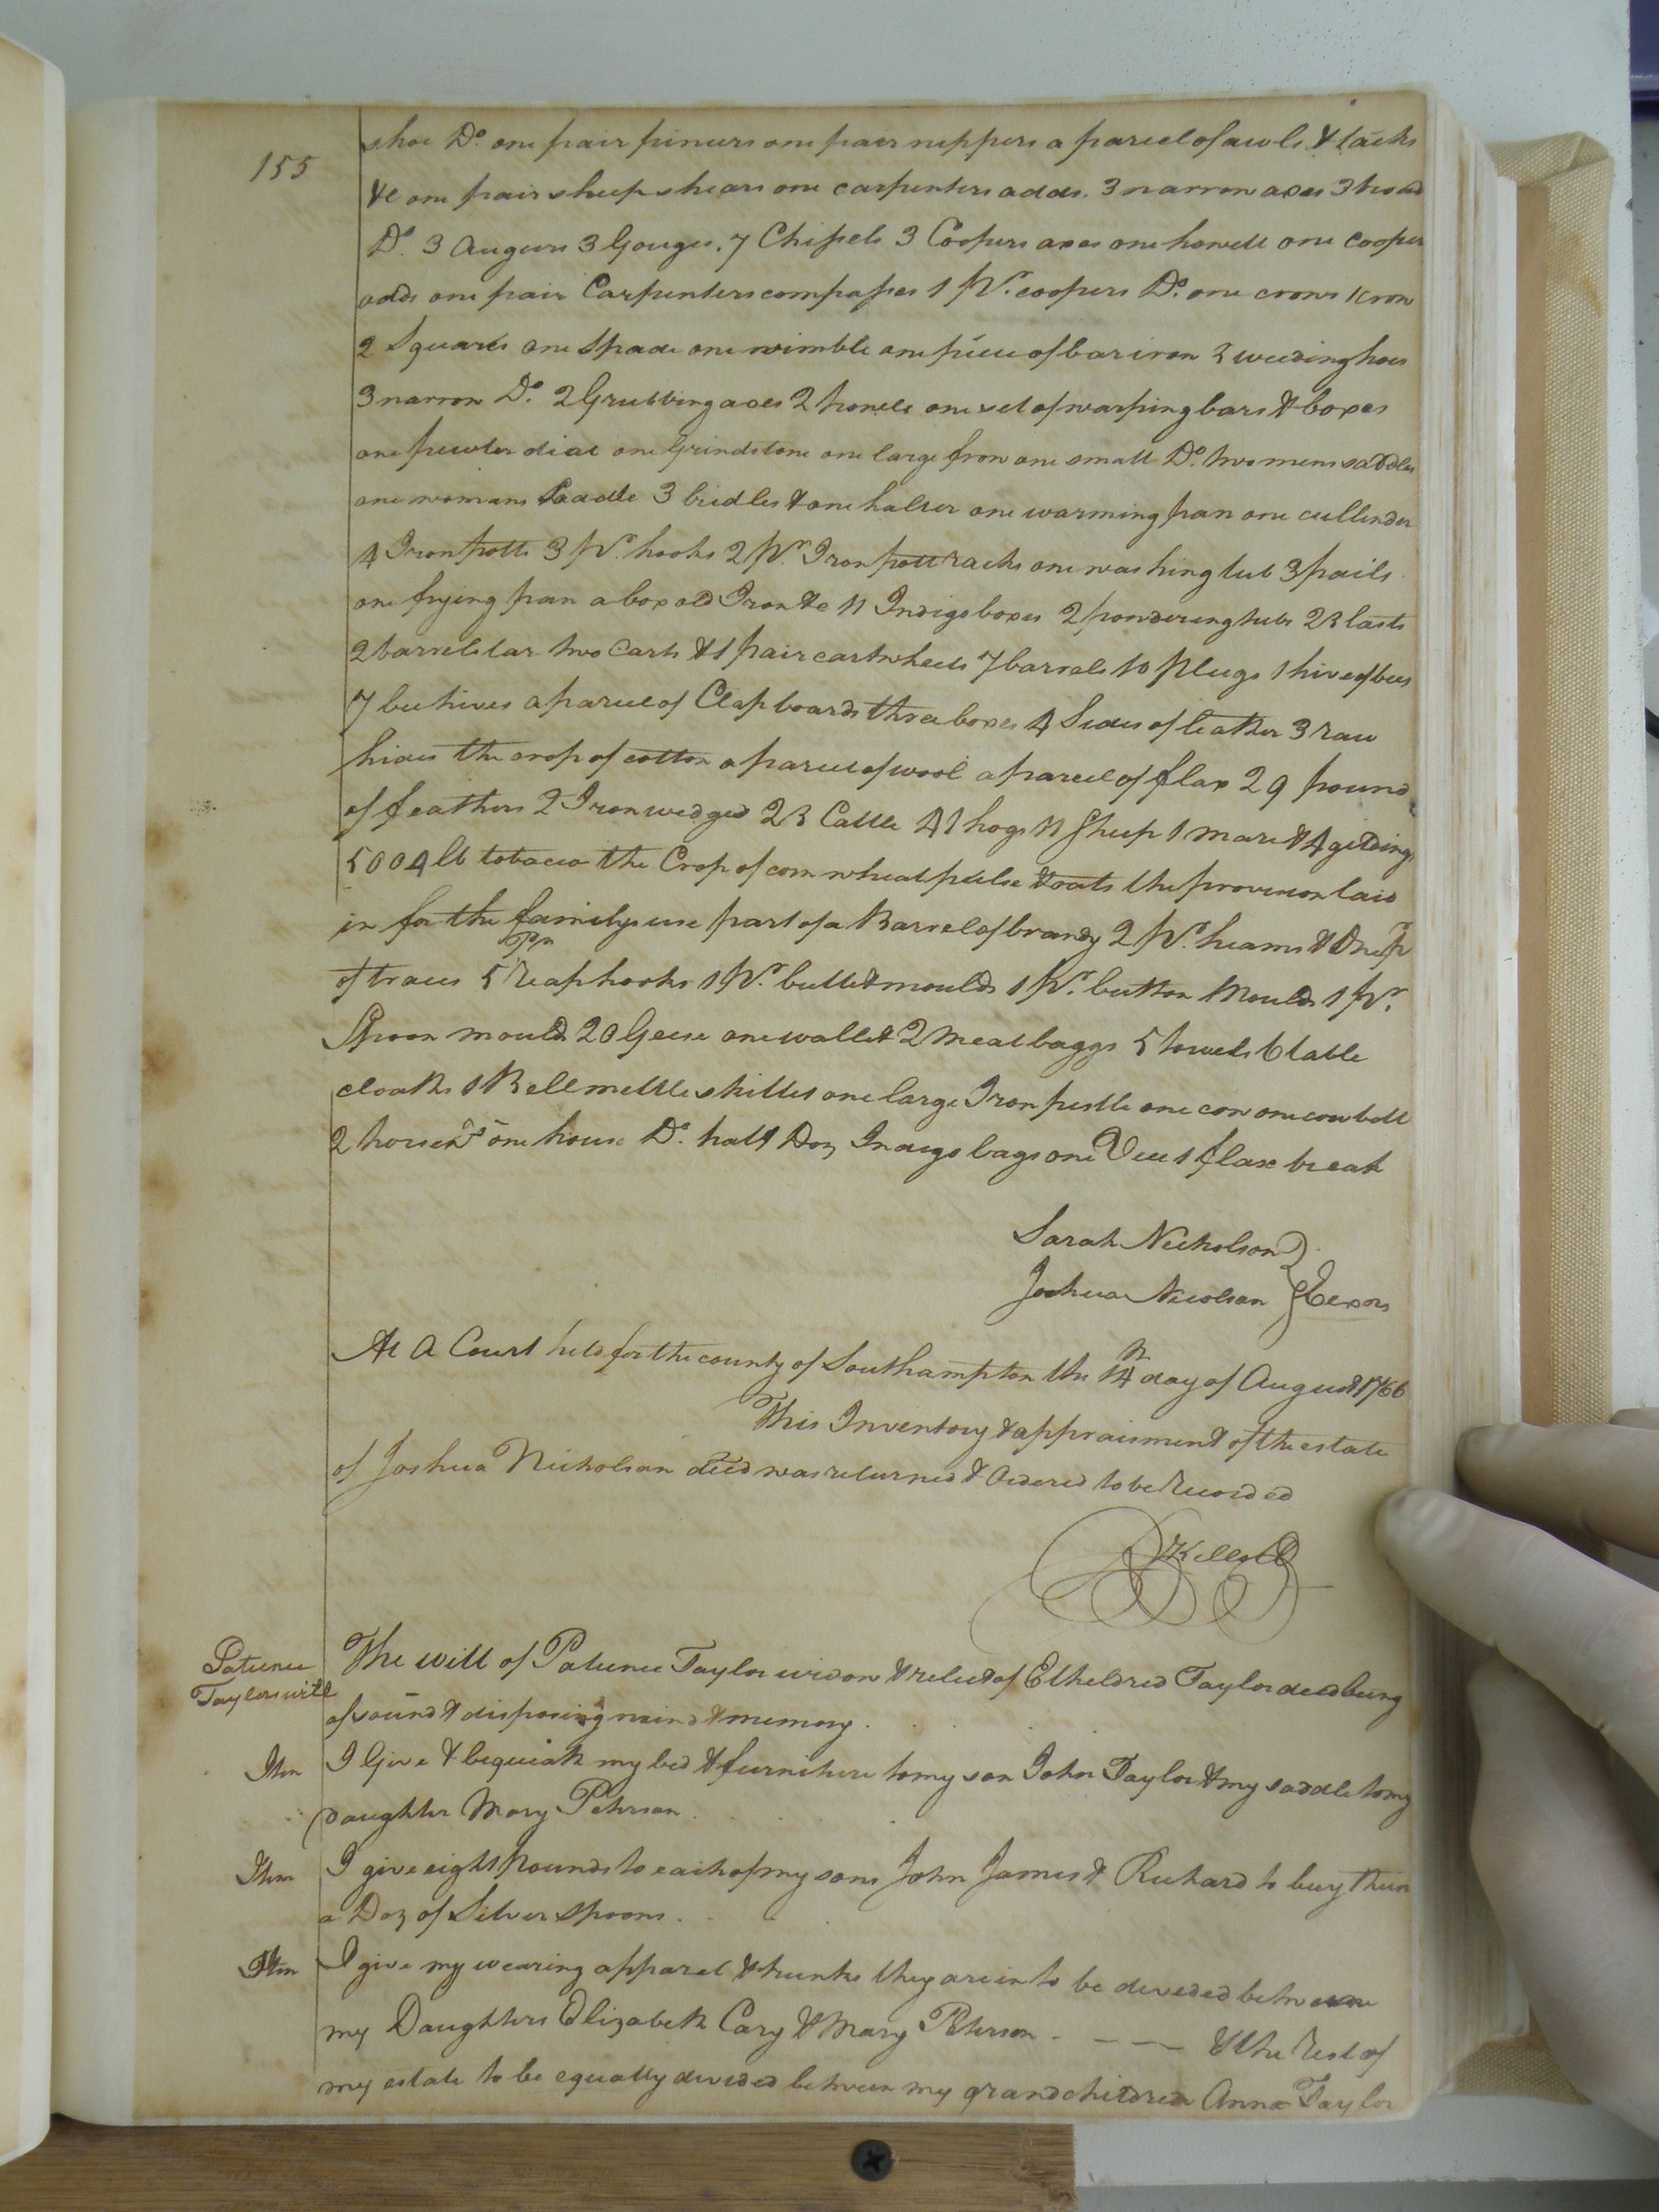 155
shoe Do. one pair pincers one pair nippers a parcel of awls & tacks
&c one pair sheep shears one carpenters adds. 3 narrow axes 3 broad
Do. 3 Augurs 3 Gouges. 7 Chissels 3 Coopers axes one howell one cooper
adds one pair Carpenters compasses 1 Pr. coopers Do. one crows Iron
2 Squares one Spade one wimble one piece of bar iron 3 weeding hoes
3 narrow Do. 2 Grubbing axes 2 howels one set of warping bars & boxes
one pewter dial one Grindstone one large frow one small Do. two mens saddles
one womans Saddle 3 bridles & one halter one warming pan one cullender
4 Iron potts 3 Pr. hooks 2 Pr. Iron pott racks one washing tub 3 pails
one frying pan a box old Iron &c 11 Indigo boxes 2 powdering tubs 23 lasts
2 barrels tar two Carts & 1 pair cartwheels 7 barrels 10 plugs 1 hive of bees
7 bee hives a parcel of Clapboards three boxes 4 Sides of leather 3 raw
hides the crop of cotton a parcel of wool a parcel of flax 29 pound
of feathers 2 Iron wedges 23 Cattle 41 hogs 11 Sheep 1 mare & 4 geldings
5004 lb tobacco the Crop of corn wheat pulse & oats the provision laid
in for the familys use part of a Barrel of brandy 2 Pr. heams & One
Pr
of traces 5 reaphooks 1 Pr. bullet moulds 1 Pr. button Moulds 1 Pr.
Spoon mould 20 Geese one wallet 2 meal baggs 5 towels 6 table
cloaths 1 Bell mettle skillet one large Iron pestle one cow one cow bell
2 horse Do one house Do. half Doz Indigo bags one 1 flax break
Sarah Nicholson
Joshua Nicolson } Exors
At A Court held for the county of Southampton the 14th day of August 1766
This Inventory & appraisment of the estate
of Joshua Nicholson decd was returned & Ordered to be Recorded
R Kello C
Patience
Taylors will
The will of Patience Taylor widow & relict of Etheldred Taylor decd being
of sound & disposing mind & memory.
Itm
I Give & bequeath my bed & furniture to my son John Taylor & my saddle to my
Daughter Mary Peterson.
Itm
I give eight Pounds to each of my sons John James & Richard to buy them
a Doz of Silver Spoons.
Itm
I give my wearing apparel & trunks they are in to be devided between
my Daughters Elizabeth Cary & Mary Peterson - - - & the Rest of
my estate to be equally devided between my grandchildren Anna Taylor